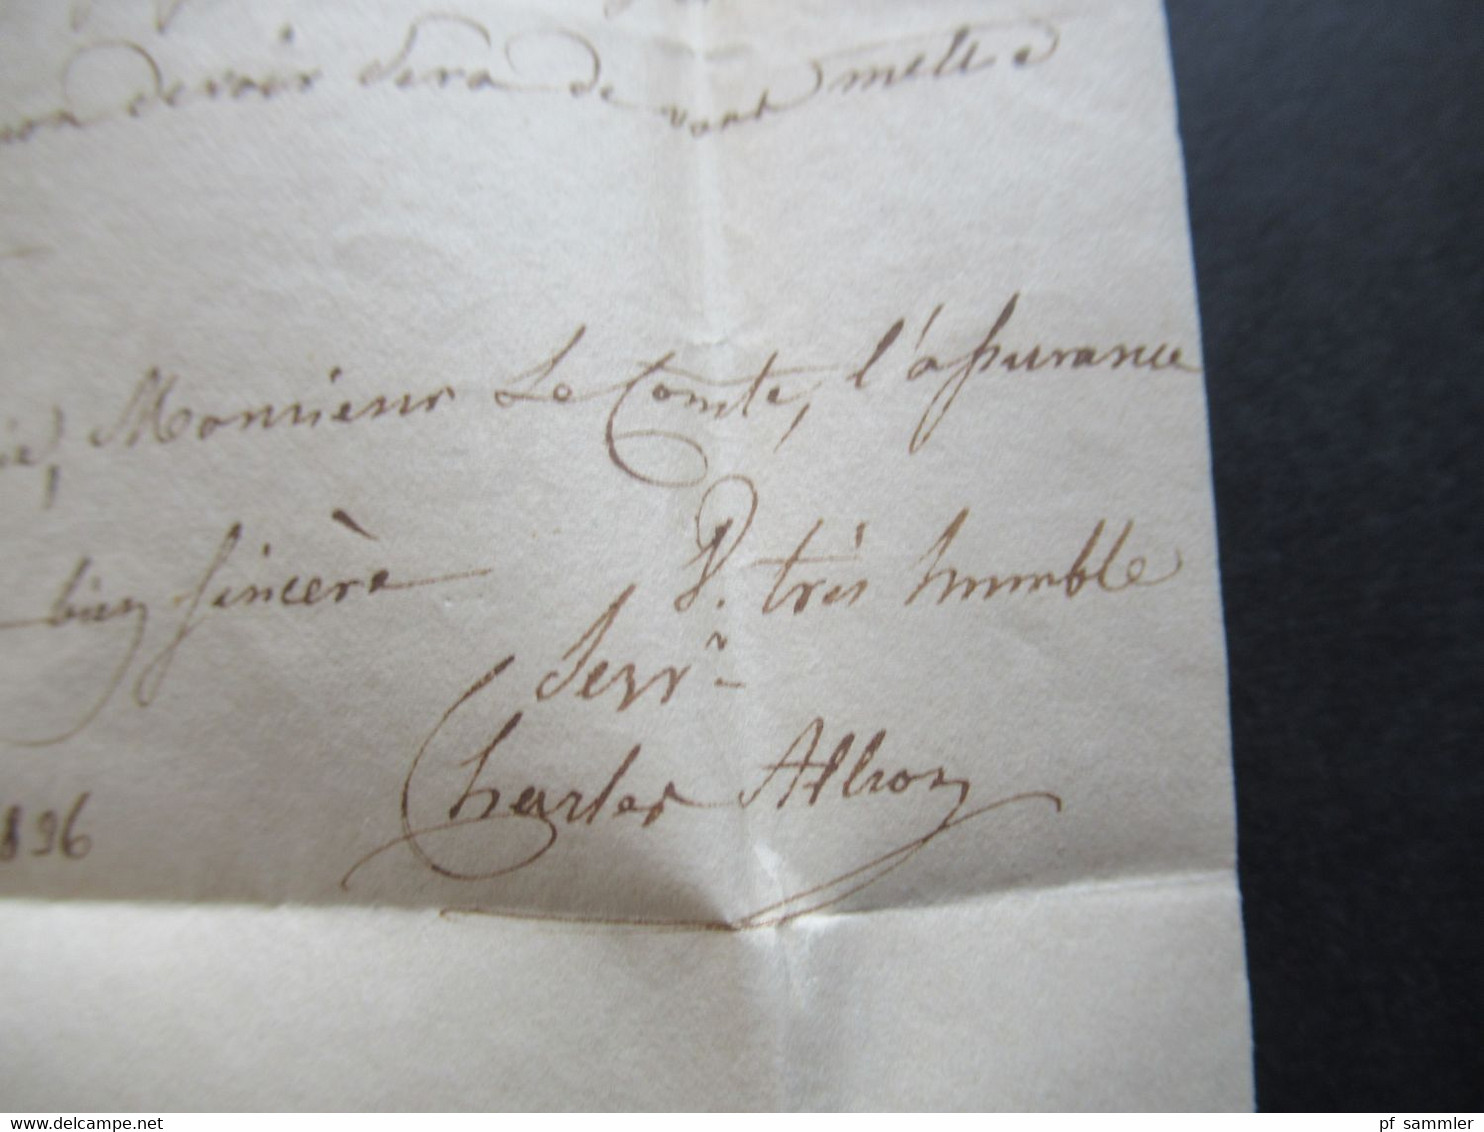 mon devoir sera de vous mettre
Monsieur Le Comte, l'assurance
bien sincère
V. très humble
Serv.r
Charles
1836
www.delcampe.net
pf_sammler